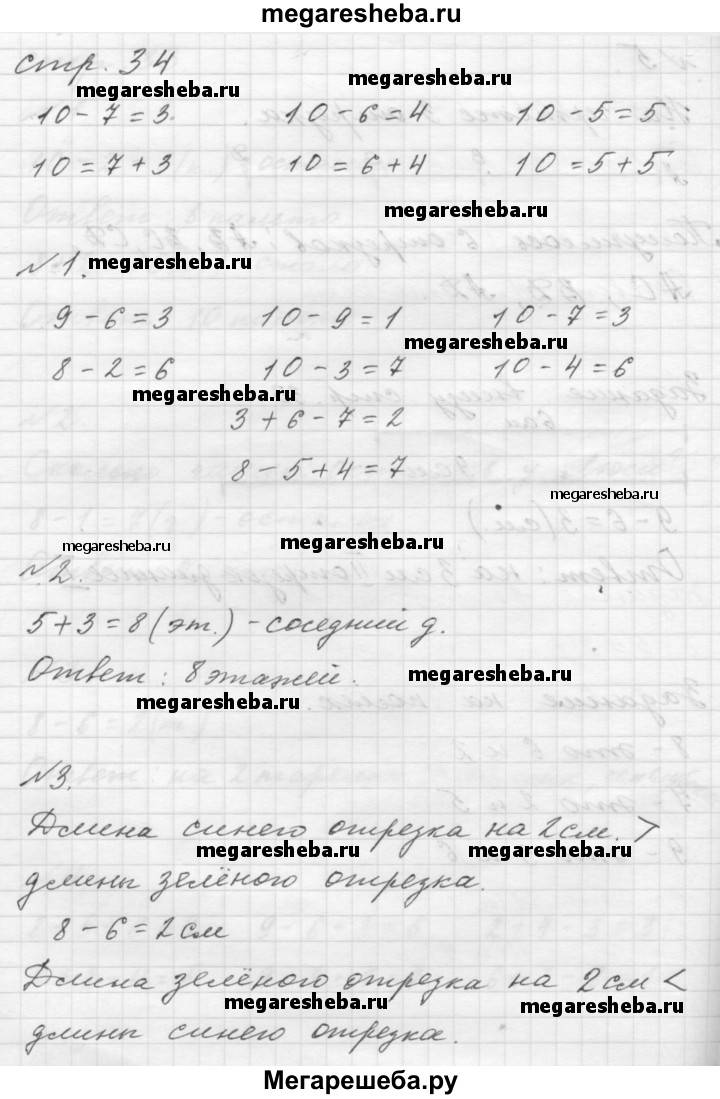 megaresheba.ru
стр. 34
megaresheba.ru
megaresheba.ru
10 - 7 = 3. 10 - 6 = 4 10 - 5 = 5
10 = 7 + 3 10 = 6 + 4 10 = 5 + 5
megaresheba.ru
№1. megaresheba.ru
9 - 6 = 3 10 - 9 = 1 10 - 7 = 3
megaresheba.ru
8 - 2 = 6 10 - 3 = 7 10 - 4 = 6
megaresheba.ru
3 + 6 - 7 = 2
8 - 5 + 4 = 7
megaresheba.ru
megaresheba.ru
megaresheba.ru
№2.
5 + 3 = 8 (эт.) - соседний д.
Ответ: 8 этажей. megaresheba.ru
megaresheba.ru
№3.
Длина синего отрезка на 2 см. >
megaresheba.ru megaresheba.ru
длины зелёного отрезка.
8 - 6 = 2 см
Длина зелёного отрезка на 2 см <
megaresheba.ru megaresheba.ru
длины синего отрезка.
Мегарешеба.ру